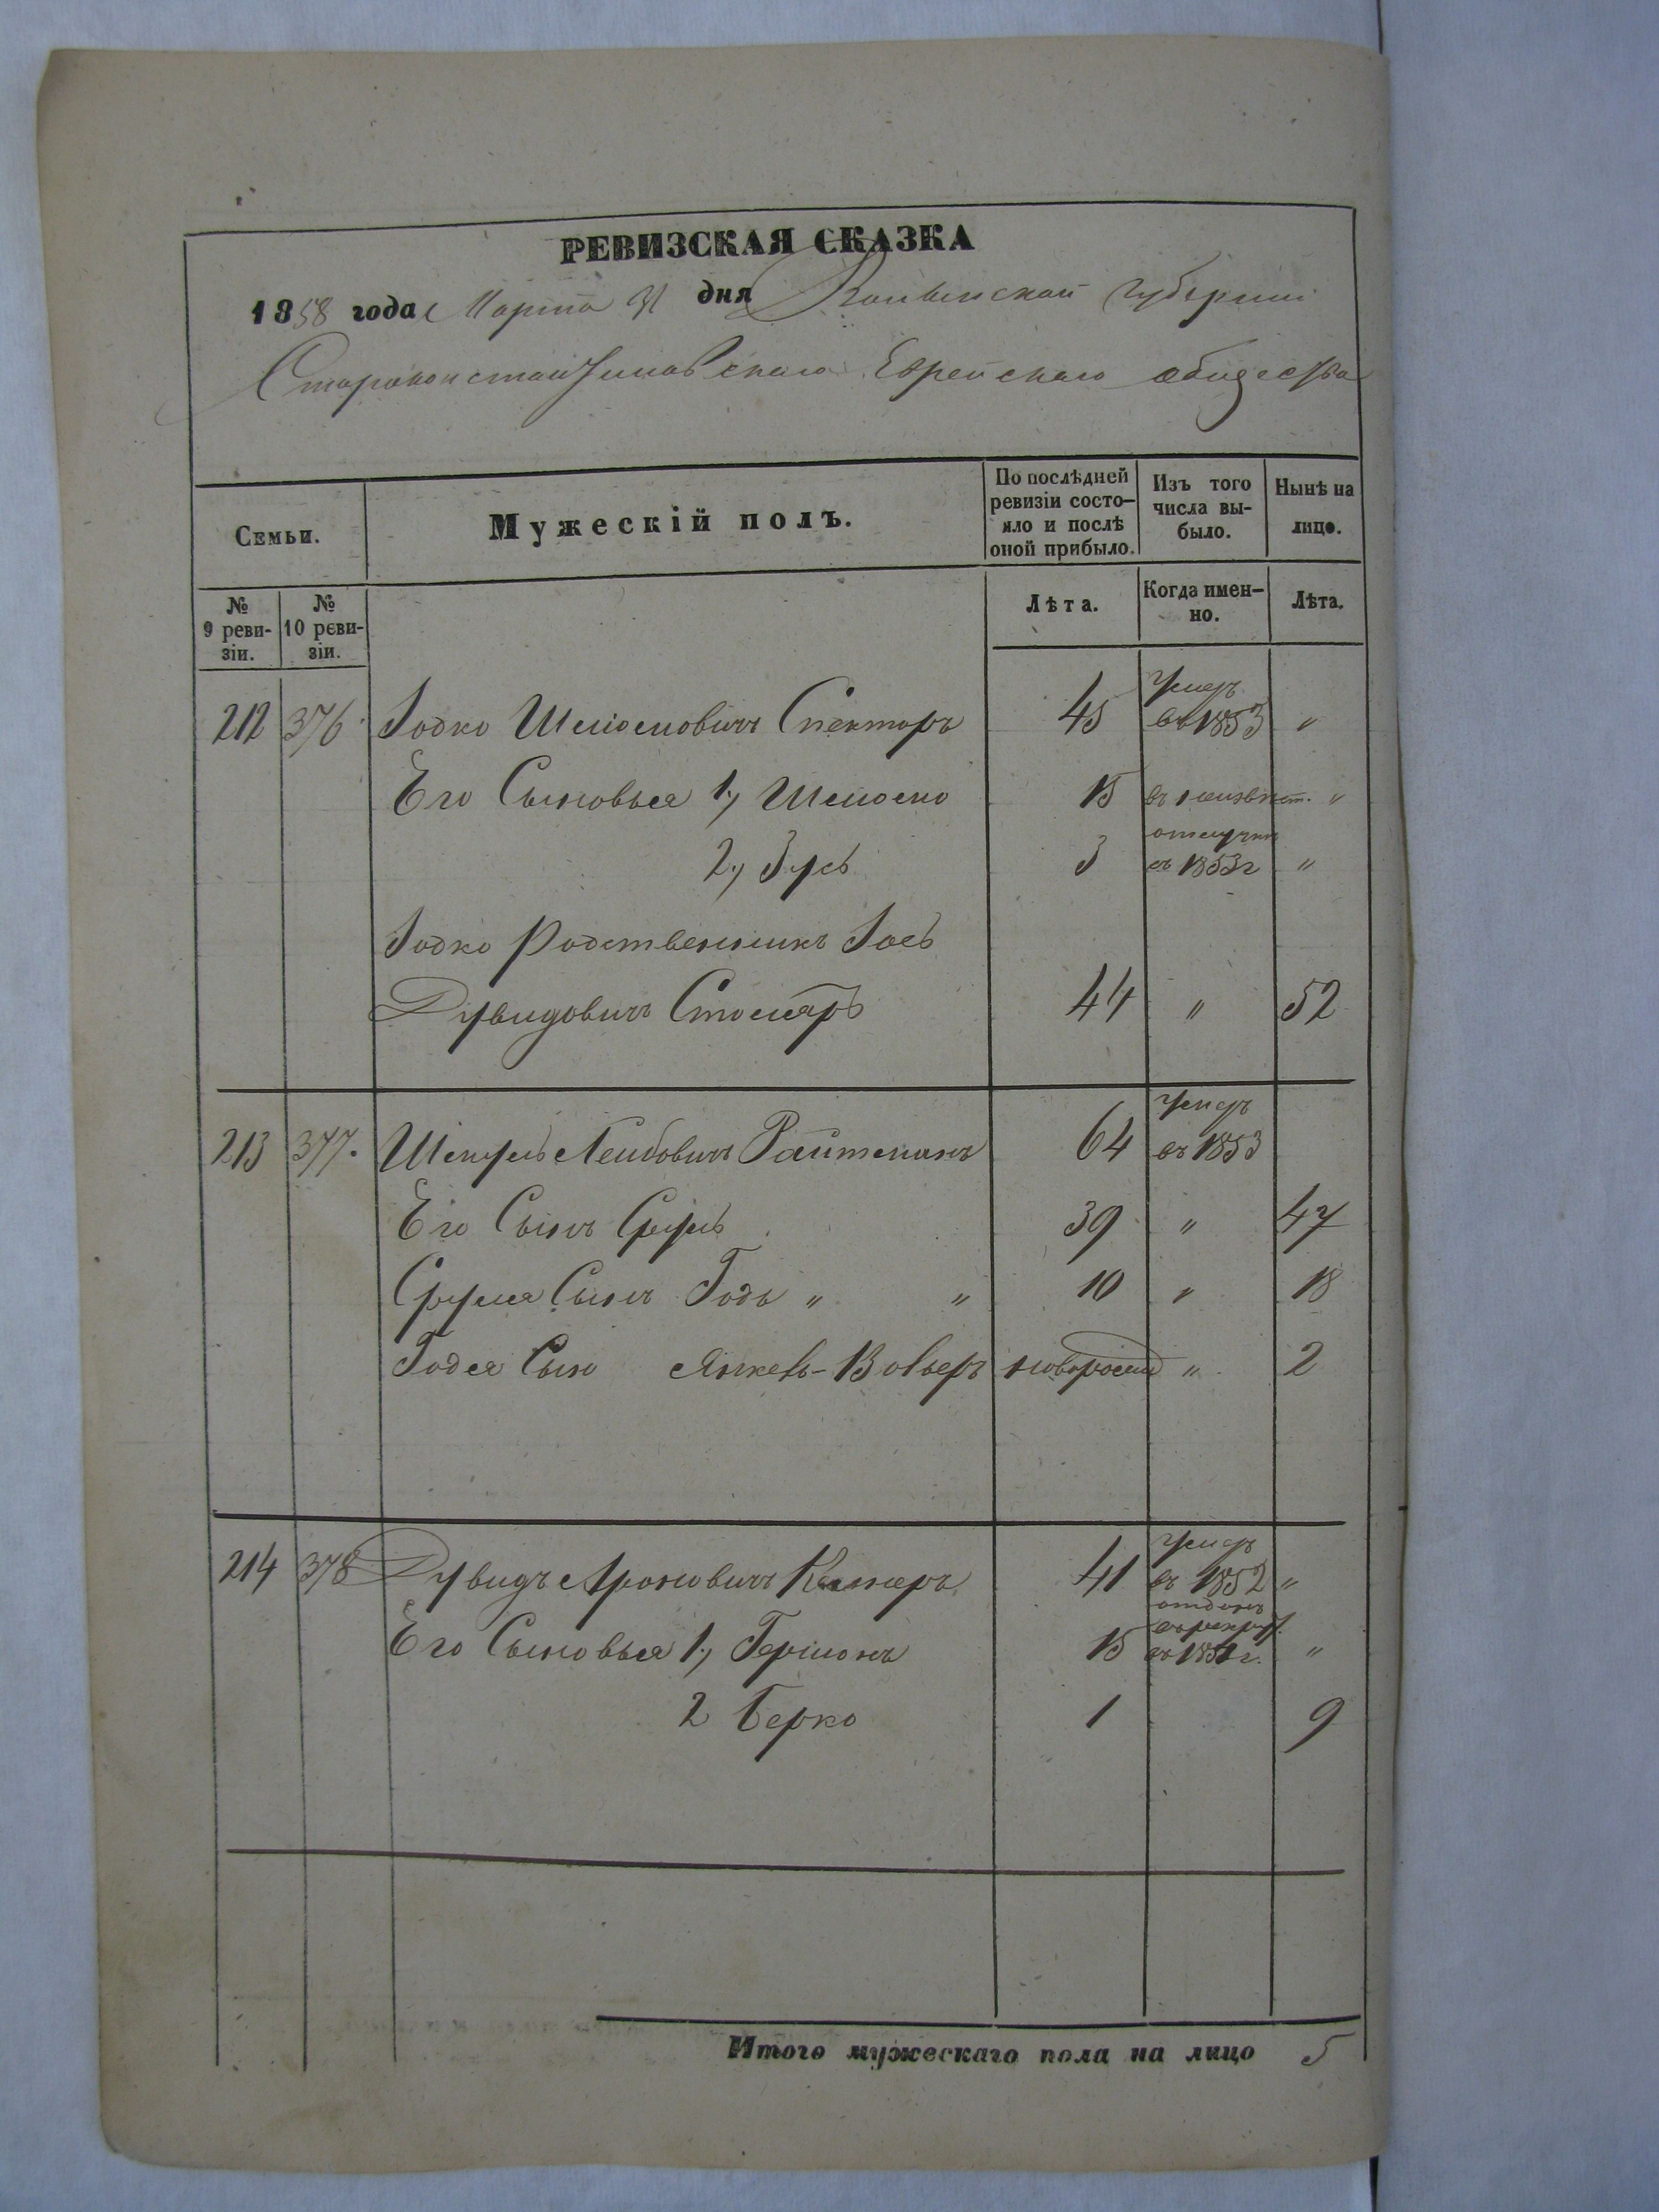 РЕВИЗСКАЯ СКАЗКА
1858 года Марта 31 дня Волынской губернии
Староконстантиновскаго Еврейскаго общества
Семьи.
Мужескій полъ.
По послѣдней ревизіи состо-яло и послѣ оной прибыло.
Изъ того числа вы-было.
Нынѣ на лицо.
№ 9 реви-зіи.
№ 10 реви-зіи.
Лѣта.
Когда имен-но.
Лѣта.
212 376 Іодко Шліомовичъ Спекторъ 45 умеръ въ 1853 "
Его Сыновья 1, Шліомо 15 въ неизвѣст. "
2, Зусь 3 отлучкѣ съ 1853 г "
Іодко Родственникъ Іось
Дувидовичъ Столяръ 44 " 52
213 377. Шмуль Лейбовичъ Райтманъ 64 умеръ въ 1853
Его Сынъ Сруль 39 " 47
Сруля Сынъ Годь " " 10 " 18
Годя Сынъ Янкель-Вольеръ новорожд " 2
214 378 Дувидъ Ароновичъ 41 умеръ въ 1852 "
Его Сыновья 1, Гершонъ 15 отданъ въ рекрут. въ 1851 г. "
2 Берко 1 9
Итого мужескаго пола на лицо 5